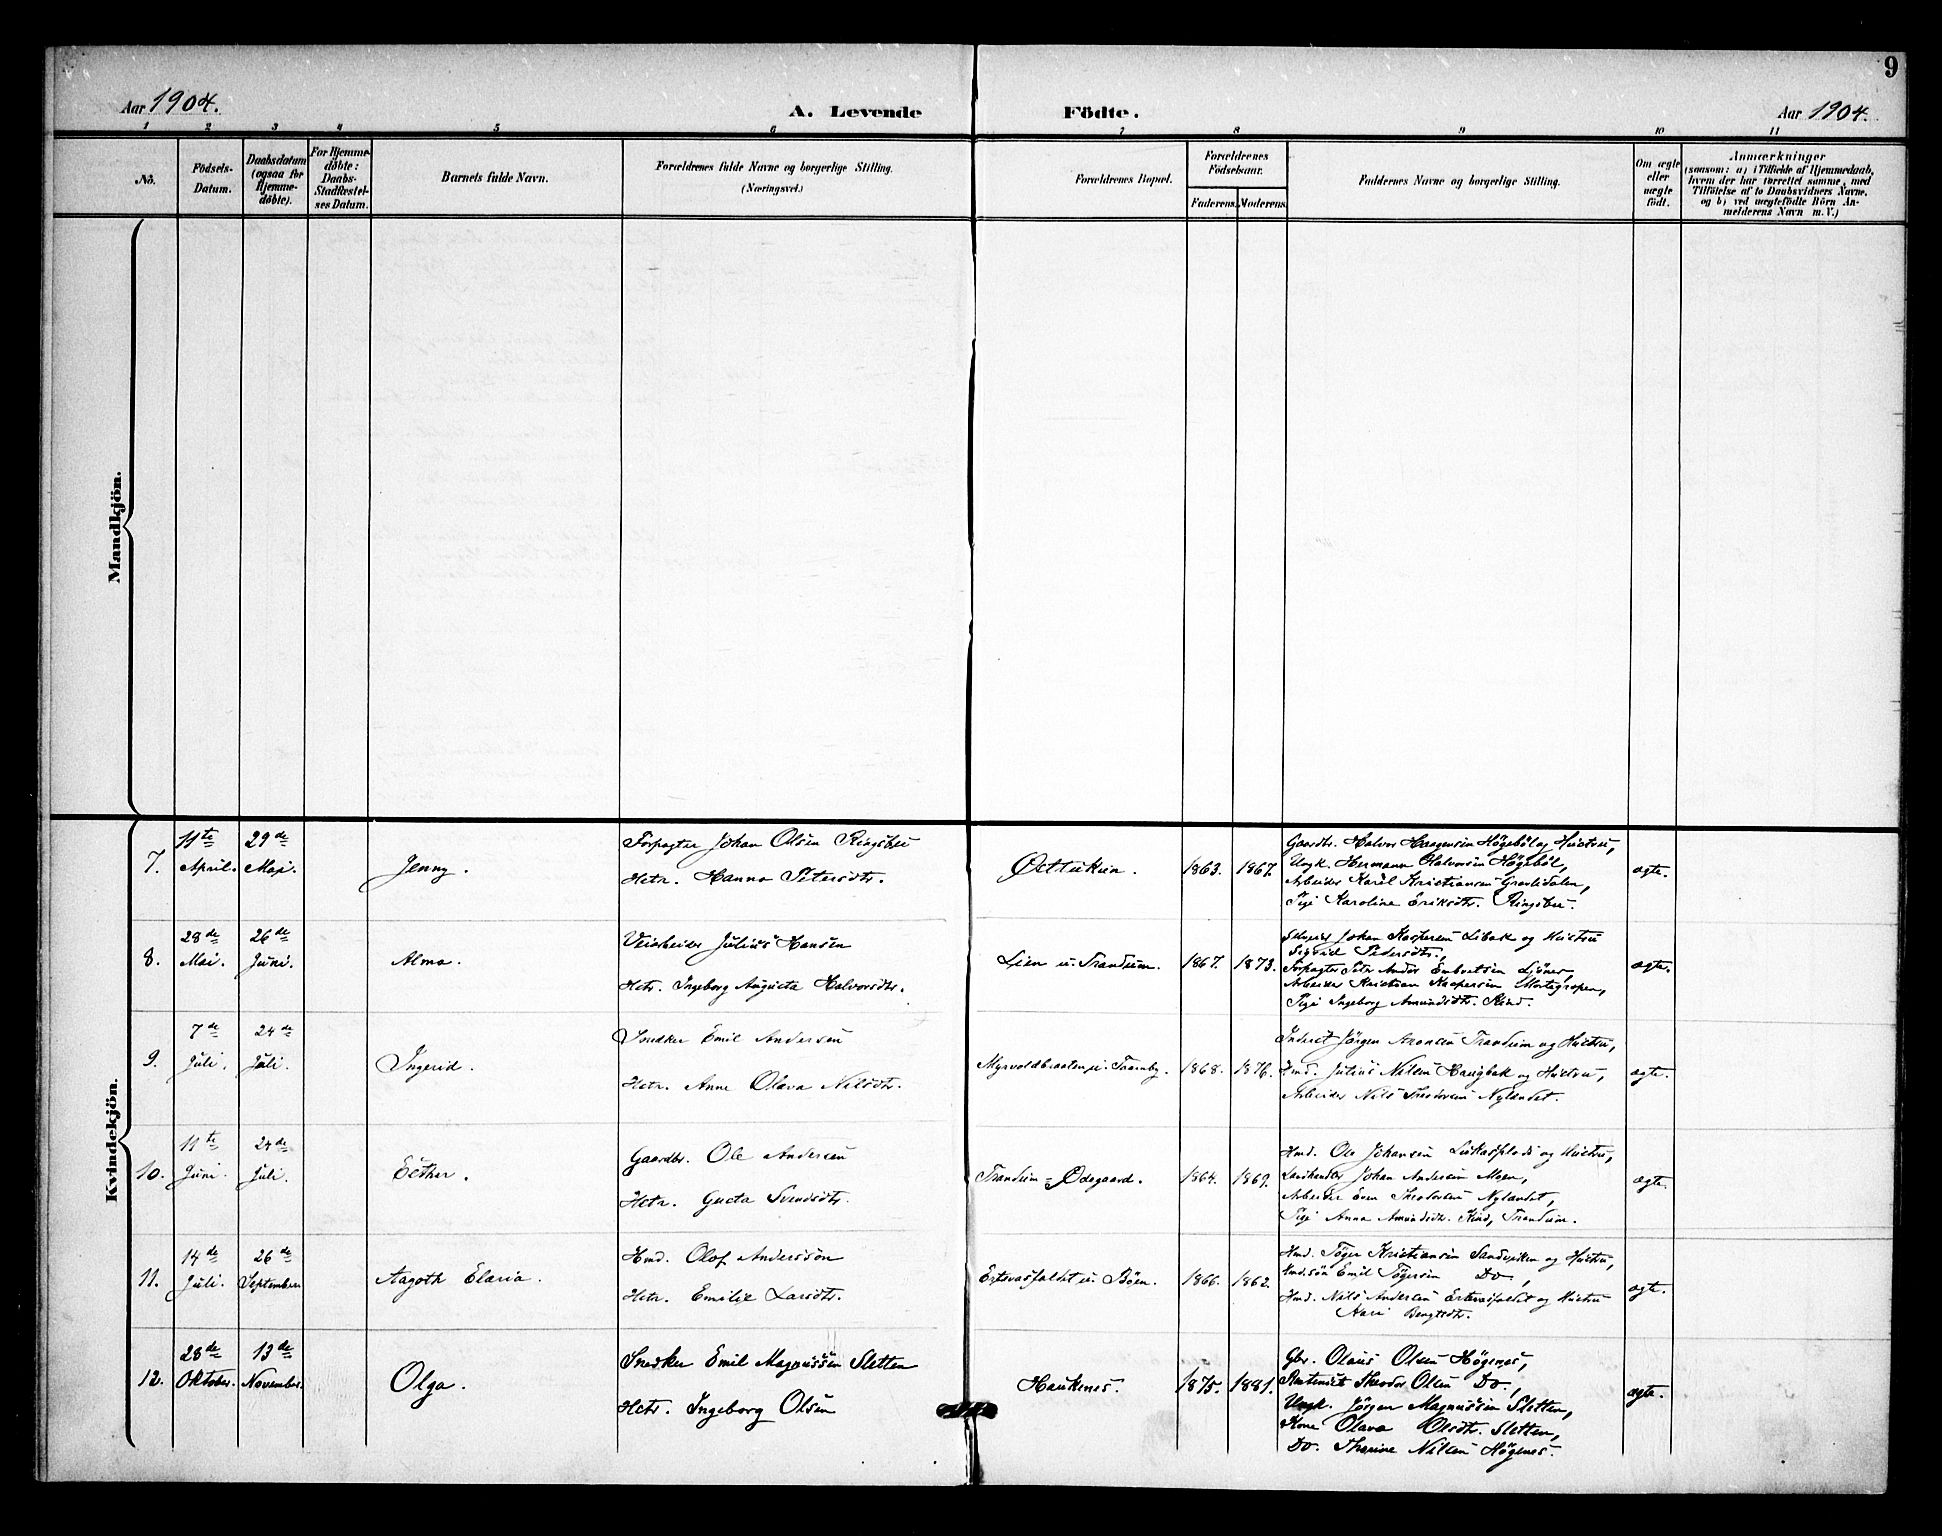 9
Aar 1904.
A. Levende Födte.
Aar 1904.
1 2 3 4 5 6 7 8 9 10 11
Nô.
Födsels-
Datum.
Daabsdatum
(ogsaa for
Hjemme-
döbte).
For Hjemme-
döbte:
Daabs-
Stadfæstel-
ses Datum.
Barnets fulde Navn.
Forældrenes fulde Navne og borgerlige Stilling.
(Næringsvei.)
Forældrenes Bopæl.
Forældrenes
Födselsaar.
Faderens. Moderens.
Faddernes Navne og borgerlige Stilling.
Om ægte
eller
uægte
födt.
Anmærkninger
(saasom: a) i Tilfælde af Hjemmedaab,
hvem der har forrettet samme, med
Tilföielse af to Daabsvidners Navne.
og b) ved uægtefödte Börn An-
melderens Navn m. V.)
Mandkjön.
Kvindekjön.
7.
11te
April.
29de
Mai.
Jenny.
Forpagter Johan Olsen Ringsbu
Hstr. Hanna Petersdtr.
1863. 1867.
Gaardbr. Halvor Haagensen Högeböl og Hustru,
Ungk. Hermann Halvorsen Högeböl,
Arbeider Karl Kristiansen Gravlidalen,
Pige Karoline Eriksdtr. Ringsbu.
ægte.
8.
28de
Mai.
26de
Juni.
Alma.
Veiarbeider Julius Hansen
Hstr. Ingeborg Augusta Halvorsdtr.
Lien u. Trandum.
1867. 1873.
Selveier Johan Kaspersen Libak og Hustru
Sigrid Pedersdtr.,
Forpagter Petr Anders Embretsen Ljönes,
Arbeider Kristian Kaspersen
Pige Ingeborg Amundsdtr. Kind.
ægte.
9.
7de
Juli.
24de
Juli.
Ingerid.
Snedker Emil Andersen
Hstr. Anne Olava Nilsdtr.
Myrvoldbraaten u. Tramby.
1868. 1876.
Inderst Jörgen Aronsen Trandum og Hustru,
Hmd. Julius Nilsen Haugbak og Hustru,
Arbeider Nils Theodorsen Nylandet.
ægte.
10.
11te
Juni.
24de
Juli.
Esther.
Gaardbr. Ole Andersen
Hstr. Gusta Svendsdtr.
Trandum - Ödegaard.
1864. 1869.
Hmd. Ole Johansen Liukasplads og Hustru,
Landhandler Johan Andersen Moen,
Arbeider Even Theodorsen Nylandet,
Pige Anna Amundsdtr. Kind, Trandum.
ægte.
11.
14de
Juli.
26de
September
Aagoth Elaria.
Hmd. Olof Anderssön
Hstr. Emilie Larsdtr.
u. Böen.
1866. 1862.
Hmd. Töger Kristiansen Sandviken og Hustru,
Hmdsön Emil Tögersen Do,
Hmd. Nils Andersen og Hustru
Kari Bengtsdtr.
ægte.
12.
28de
Oktober.
13de
November.
Olga.
Snedker Emil Magnussen Sletten
Hstr. Ingeborg Olsen
Haukenes.
1875. 1881.
Gbr. Olaus Olsen Högenes,
Rentenist Theodor Olsen Do,
Ungk. Jörgen Magnussen Sletten,
Kone Olava Olsdtr. Sletten,
Do. Thorine Nilsen Högenes.
ægte.